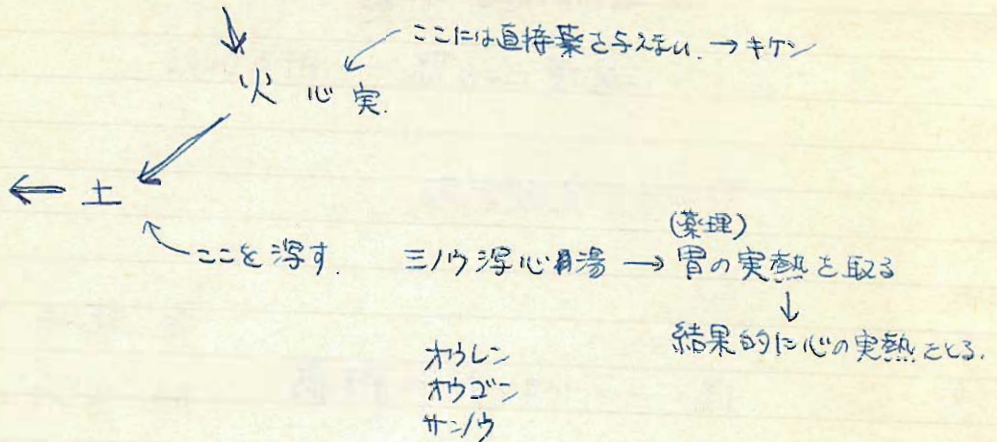 ここには直接薬を与えまい. → キケン
火 心 実.
← 土
ここを瀉す.
三ノウ瀉心湯 → 胃の実熱を取る
(薬理)
↓
結果的に心の実熱をとる.
オウレン
オウゴン
サンノウ